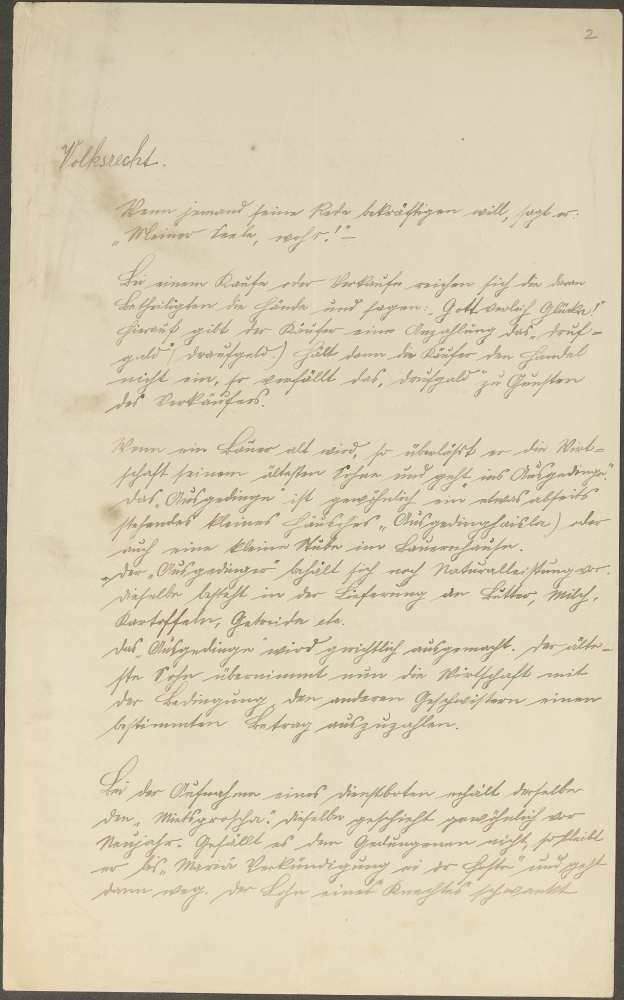 2
Volksrecht.
Wenn jemand seine Rede bekräftigen will, sagt er:
„Meiner Seele, wohr!" –
Bei einem Kaufe oder Verkaufe reichen sich die daran
Betheiligten die Hände und sagen: „Gott verleih Glücke!"
Hierauf gibt der Käufer eine Anzahlung das „druf-
gald" (Draufgeld.) Hält dann der Käufer den Handel
nicht ein, so verfällt das „drufgald" zu Gunsten
des Verkäufers.
Wenn ein Bauer alt wird, so überläßt er die Wirt-
schaft seinem ältesten Sohne und geht „ins Ausgedinge".
Das „Ausgedinge" ist gewöhnlich ein etwas abseits
stehendes kleines Häuschen „Ausgedinghaisla) oder
auch eine kleine Stube im Bauernhause.
Der „Ausgedinger" behält sich noch Naturalleistung vor.
Dieselbe besteht in der Lieferung an Butter, Milch,
Kartoffeln, Getreide etc.
Das „Ausgedinge" wird gerichtlich ausgemacht. Der älte-
ste Sohn übernimmt nun die Wirtschaft mit
der Bedingung den anderen Geschwistern einen
bestimmten Betrag auszuzahlen.
Bei der Aufnahme eines Dienstboten erhält derselbe
den „Mietsgroscha." Dieselbe geschieht gewöhnlich vor
Neujahr. Gefällt es dem Gedungenen nicht, so bleibt
er bis „Mariä Verkündigung ei dr Foste" und geht
dann weg. Der Lohn eines Knechtes schwankt